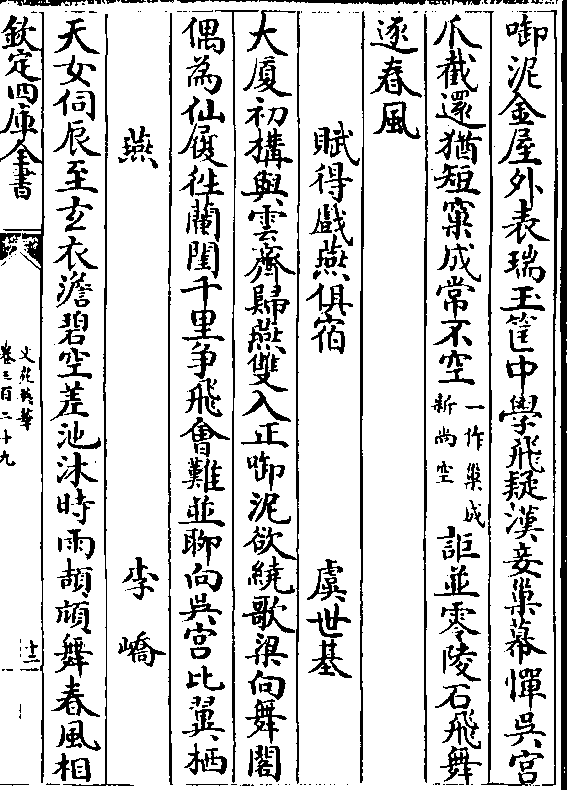 啣泥金屋外表瑞玉筐中學飛疑漢妾巢幕憚呉宫
爪截還猶短窠成常不空一作巢成新尚空詎並零陵石飛舞
逐春風
賦得戲燕俱宿 虞世基
大厦初搆與雲齊歸燕雙入正啣泥欲繞歌梁向舞閣
偶為仙履往蘭閨千里爭飛會難並聊向呉宫比翼栖
燕 李嶠
天女伺辰至玄衣澹碧空差池沐時雨頡頏舞春風相
欽定四庫全書
文苑英華
卷三百二十九
十二